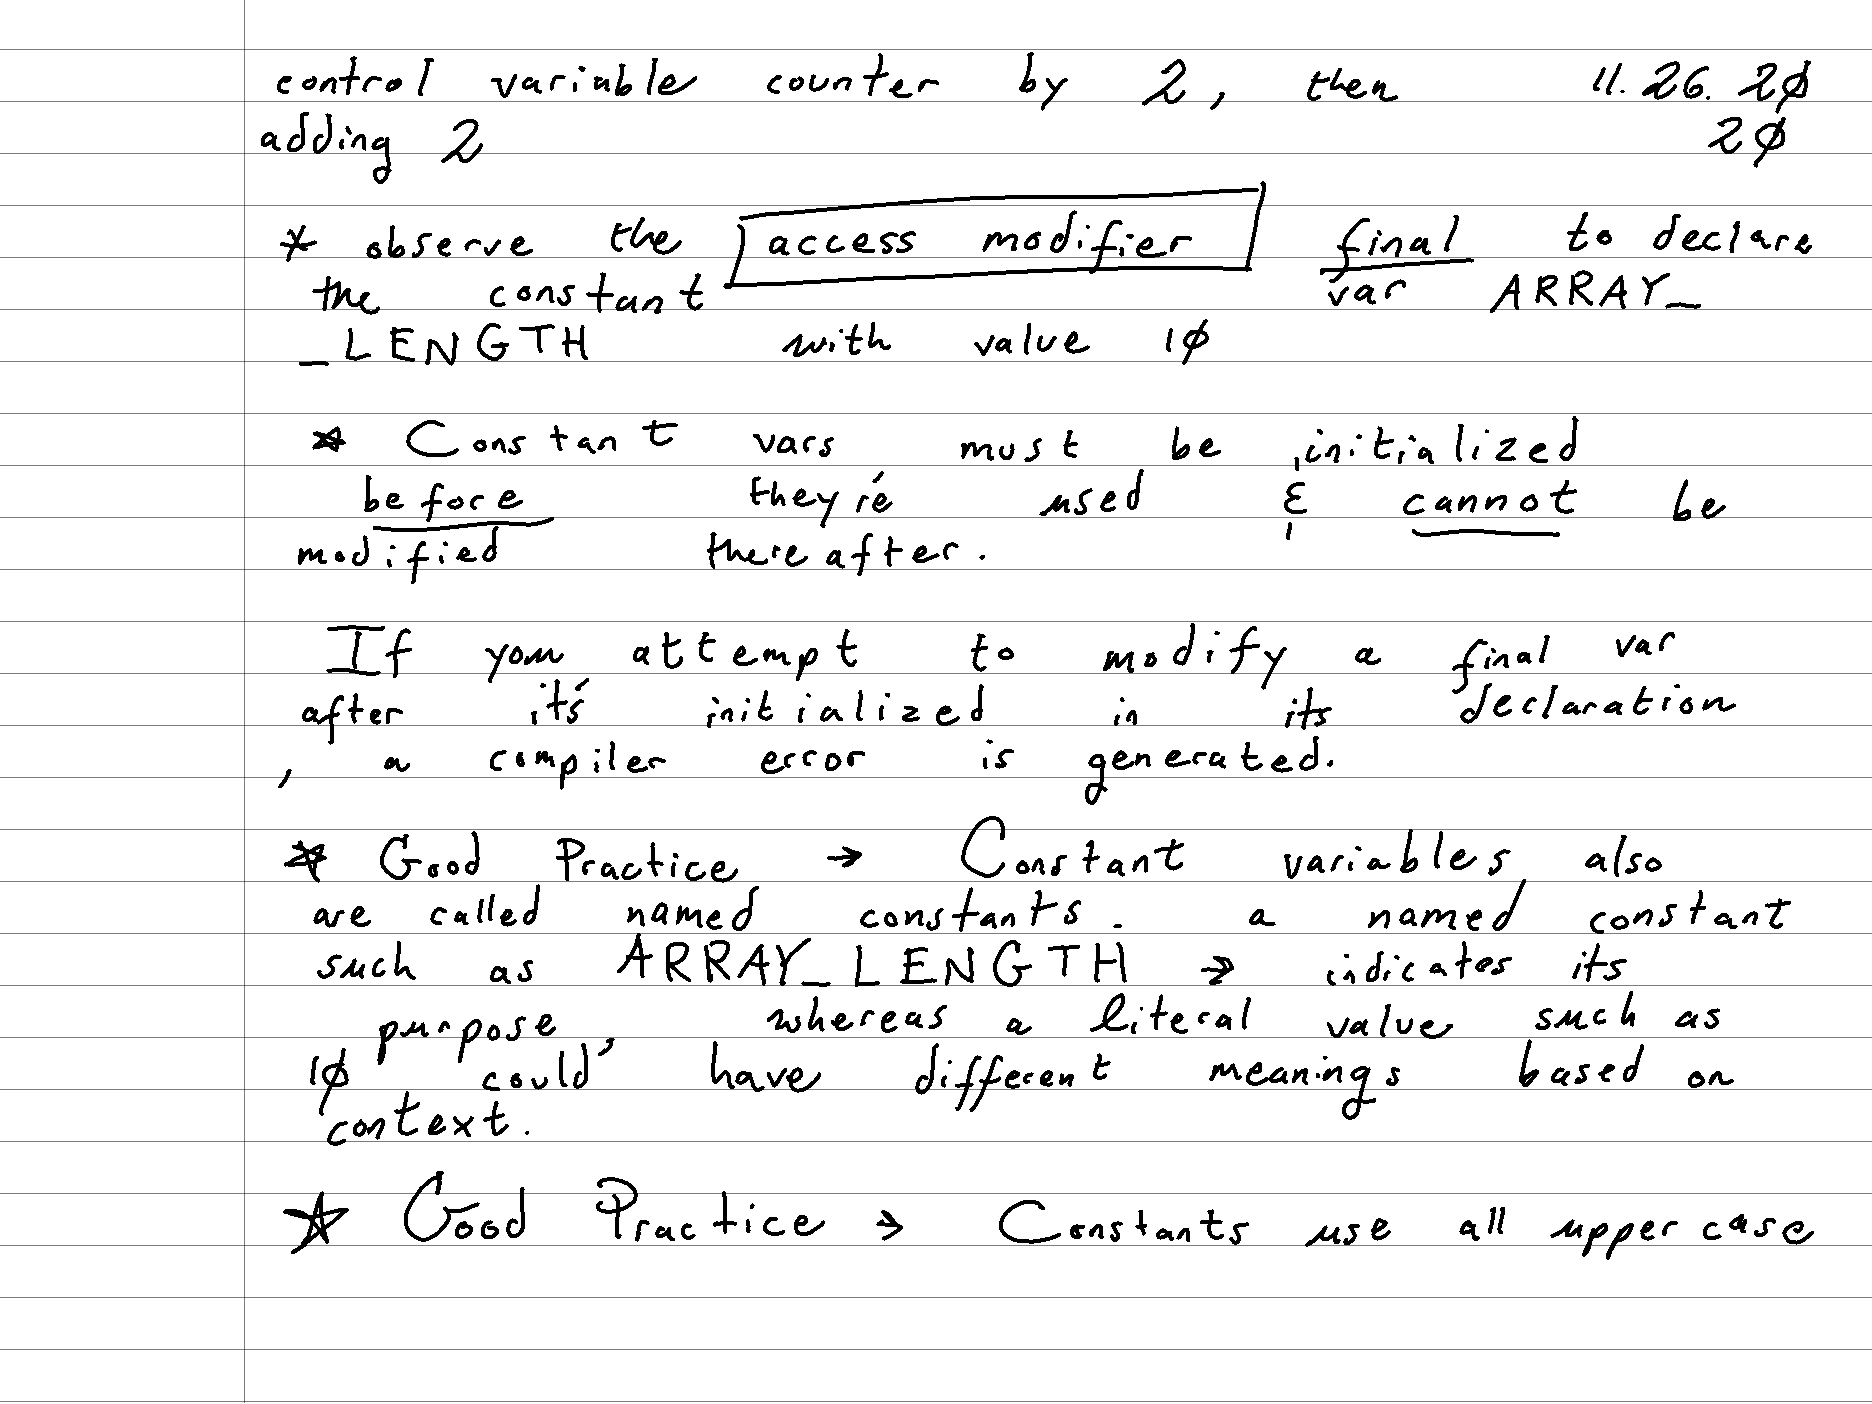 control variable counter by 2, then 11.26.2ø
adding 2 2ø
* observe the access modifier final to declare
the constant var ARRAY_
_LENGTH with value 1ø
* Constant vars must be initialized
before they're used & cannot be
modified thereafter.
If you attempt to modify a final var
after it's initialized in its declaration
, a compiler error is generated.
* Good Practice → Constant variables also
are called named constants. a named constant
such as ARRAY_LENGTH → indicates its
purpose, whereas a literal value such as
1ø could have different meanings based on
context.
☆ Good Practice → Constants use all uppercase